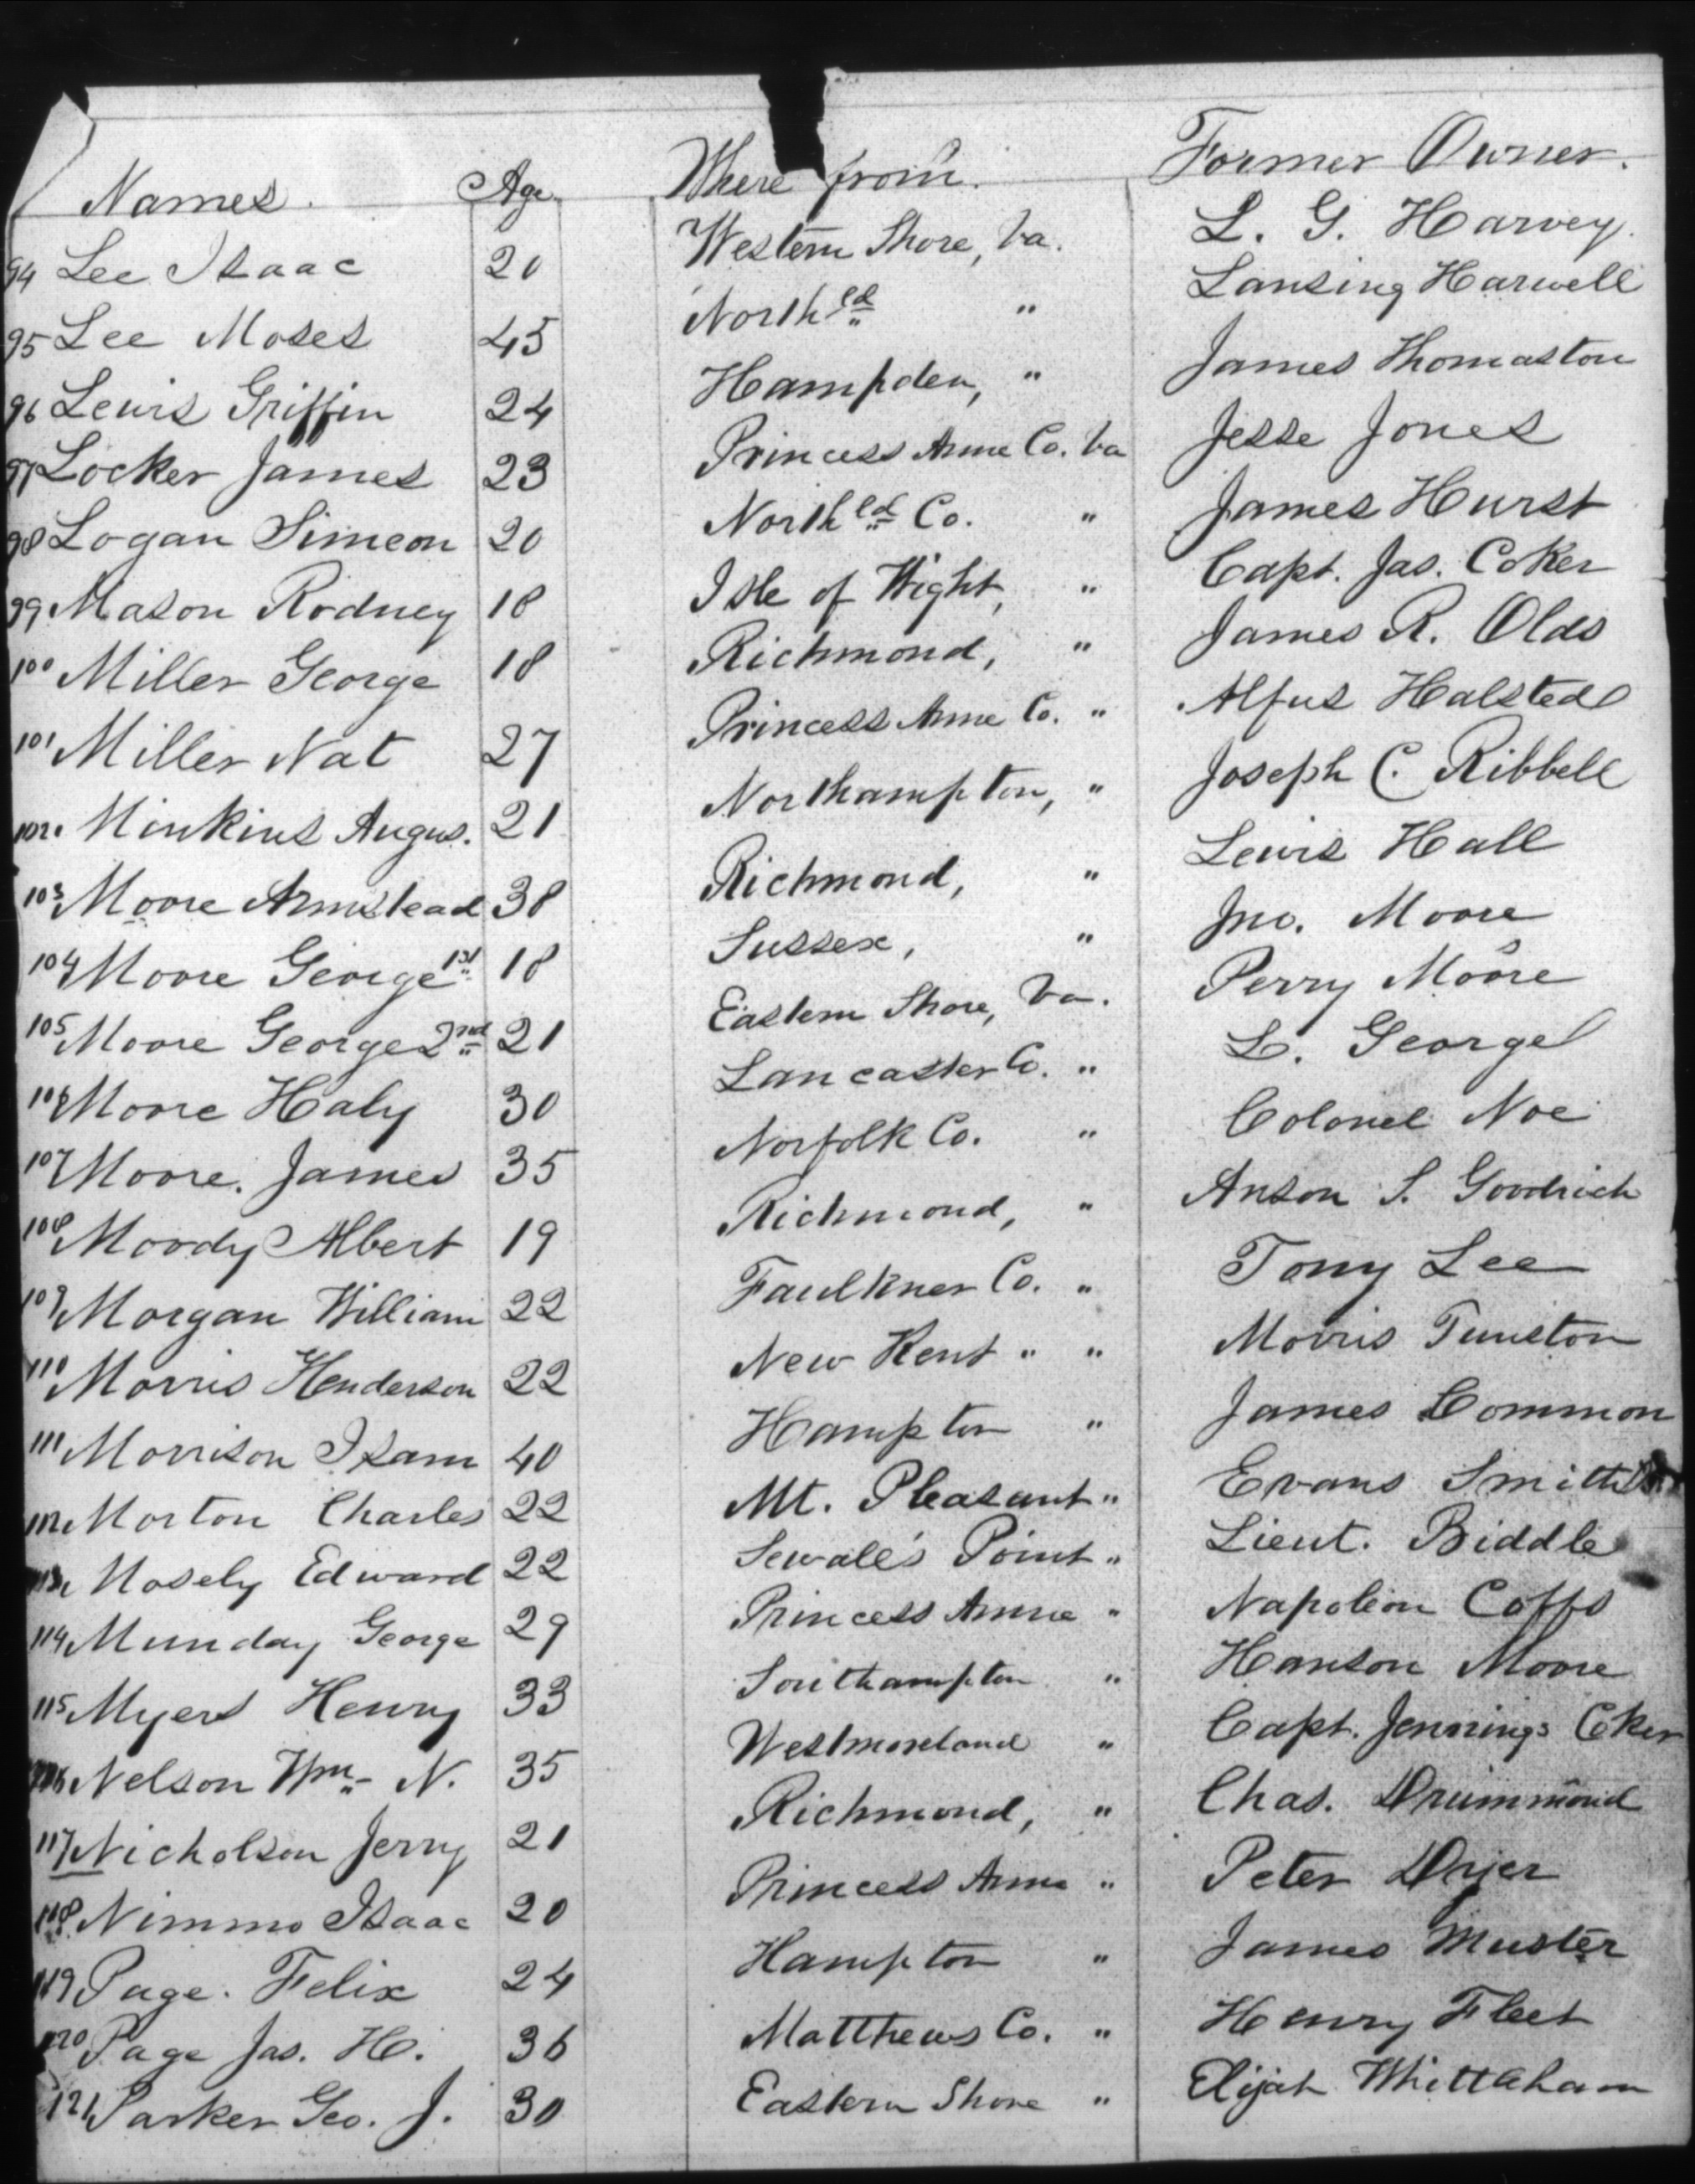 Names. Age. Where from. Former Owner.
94 Lee Isaac 20 Western Shore, Va. L. G. Harvey.
95 Lee Moses 45 Northld " Lansing Harwell
96 Lewis Griffin 24 Hampden, " James Thomaston
97 Locker James 23 Princess Anne Co. Va Jesse Jones
98 Logan Simeon 20 Northld Co. " James Hurst
99. Mason Rodney 18 Isle of Wight, " Capt. Jas. Coker
100 Miller George 18 Richmond, " James R. Olds
101 Miller Nat 27 Princess Anne Co. " Alfus Halsted
102. Minkins Augus. 21 Northampton, " Joseph C. Ribbell
103 Moore Armstead 38 Richmond, " Lewis Hall
104 Moore George 1st 18 Sussex, " Jno. Moore
105 Moore George 2nd 21 Eastern Shore, Va. Perry Moore
106 Moore Haly 30 Lancaster Co. " L. George
107 Moore. James 35 Norfolk Co. " Colonel Noe
108 Moody Albert 19 Richmond, " Anson S. Goodrich
109 Morgan William 22 Faulkner Co. " Tony Lee
110 Morris Henderson 22 New Kent " " Morris Tunston
111 Morrison Isam 40 Hampton " James Common
112 Morton Charles 22 Mt. Pleasant " Evans Smith
113 Mosely Edward 22 Sewall's Point " Lieut. Biddle
114 Munday George 29 Princess Anne " Napoleon Coffs
115 Myers Henry 33 Southampton " Hanson Moore
116 Nelson Wm. N. 35 Westmoreland " Capt. Jennings Coker
117 Nicholson Jerry 21 Richmond, " Chas. Drummond
118 Nimmo Isaac 20 Princess Anne " Peter Dyer
119 Page. Felix 24 Hampton " James Muster
120 Page Jas. H. 36 Matthews Co. " Henry Fleet
121 Parker Geo. J. 30 Eastern Shore " Elijah Whittaham